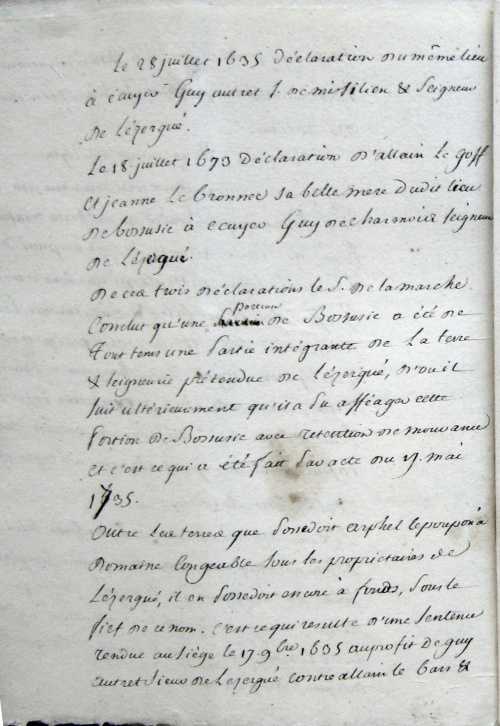 Le 28 juillet 1635 déclaration du même lieu
à écuyer Guy autret S. de missilien & Seigneur
de Lézergué.
Le 18. juillet 1673 déclaration d'allain Le goff
et jeanne Le bronnec sa belle mere dudit lieu
de bossusic à ecuyer Guy de charmois seigneur
de Lézergué.
de ces trois déclarations le S. de la marche
Conclut qu'une portion de Bossusic a été de
tout tems une partie intégrante de La terre
& seigneurie prétendue de Lézergué, d'ou il
suit ultérieurement qu'il a pu afféager cette
portion de Bossusic avec retention de mouvance
et c'est ce qui a été fait par acte du mai
1735.
Outre Les terres que possedoit arphel
domaine Congeable sous les proprietaires de
Lézergué, il en possedoit encore à fonds, sous le
fief de ce nom. C'est ce qui resulte d'une sentence
rendue au siège le 17. 9bre. 1635 au profit de guy
autret sieur de Lezergué contre allain le bars &